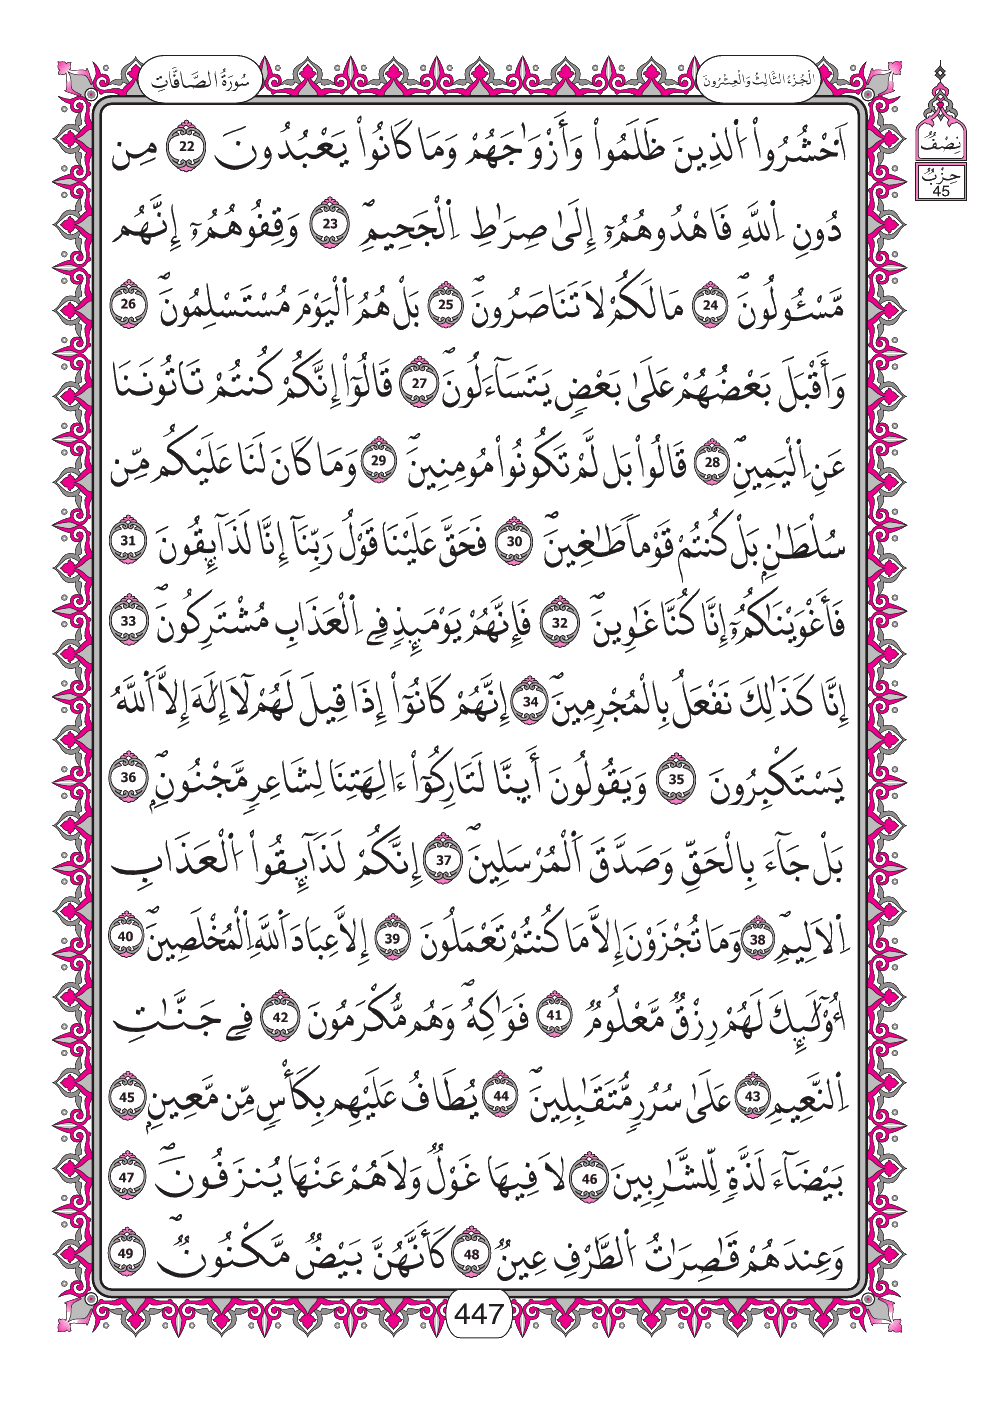 سُورَةُ الصَّافَّاتِ
الْجُزْءُ الثَّالِثُ وَالْعِشْرُونَ
نِصْفُ
حِزْبُ
45
اَ۟حْشُرُواْ اُ۬لذِينَ ظَلَمُواْ وَأَزْوَٰجَهُمْ وَمَا كَانُواْ يَعْبُدُونَ 22 مِن
دُونِ اِ۬للَّهِ فَاهْدُوهُمُۥٓ إِلَىٰ صِرَٰطِ اِ۬لْجَحِيمِ 23 وَقِفُوهُمُۥٓ إِنَّهُم
مَّسْـُٔولُونَ 24 مَا لَكُمْ لَا تَنَاصَرُونَ 25 بَلْ هُمُ اُ۬لْيَوْمَ مُسْتَسْلِمُونَ 26
وَأَقْبَلَ بَعْضُهُمْ عَلَىٰ بَعْضٍ يَتَسَآءَلُونَ 27 قَالُوٓاْ إِنَّكُمْ كُنتُمْ تَاتُونَنَا
عَنِ اِ۬لْيَمِينِ 28 قَالُواْ بَل لَّمْ تَكُونُواْ مُومِنِينَ 29 وَمَا كَانَ لَنَا عَلَيْكُم مِّن
سُلْطَٰنٍۭ بَلْ كُنتُمْ قَوْماً طَٰغِينَ 30 فَحَقَّ عَلَيْنَا قَوْلُ رَبِّنَآ إِنَّا لَذَآئِقُونَ 31
فَأَغْوَيْنَٰكُمُۥٓ إِنَّا كُنَّا غَٰوِينَ 32 فَإِنَّهُمْ يَوْمَئِذٍ فِے اِ۬لْعَذَابِ مُشْتَرِكُونَ 33
إِنَّا كَذَٰلِكَ نَفْعَلُ بِالْمُجْرِمِينَ 34 إِنَّهُمْ كَانُوٓاْ إِذَا قِيلَ لَهُمْ لَآ إِلَٰهَ إِلَّا اَ۬للَّهُ
يَسْتَكْبِرُونَ 35 وَيَقُولُونَ أَئِنَّا لَتَارِكُوٓاْ ءَالِهَتِنَا لِشَاعِرٍ مَّجْنُونٍۭ 36
بَلْ جَآءَ بِالْحَقِّ وَصَدَّقَ اَ۬لْمُرْسَلِينَ 37 إِنَّكُمْ لَذَآئِقُواْ اُ۬لْعَذَابِ
اِ۬لَالِيمِ 38 وَمَا تُجْزَوْنَ إِلَّا مَا كُنتُمْ تَعْمَلُونَ 39 إِلَّا عِبَادَ اَ۬للَّهِ اِ۬لْمُخْلَصِينَ 40
أُوْلَٰٓئِكَ لَهُمْ رِزْقٌ مَّعْلُومٌ 41 فَوَٰكِهُ وَهُم مُّكْرَمُونَ 42 فِے جَنَّٰتِ
اِ۬لنَّعِيمِ 43 عَلَىٰ سُرُرٍ مُّتَقَٰبِلِينَ 44 يُطَافُ عَلَيْهِم بِكَأْسٍ مِّن مَّعِينٍۭ 45
بَيْضَآءَ لَذَّةٍ لِّلشَّٰرِبِينَ 46 لَا فِيهَا غَوْلٌ وَلَا هُمْ عَنْهَا يُنزَفُونَ 47
وَعِندَهُمْ قَٰصِرَٰتُ اُ۬لطَّرْفِ عِينٌ 48 كَأَنَّهُنَّ بَيْضٌ مَّكْنُونٌ 49
447